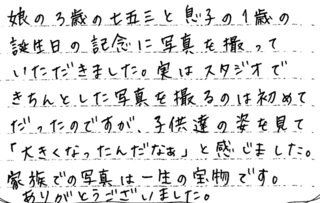 娘の3歳の七五三と息子の1歳の
誕生日の記念に写真を撮って
いただきました。実はスタジオで
きちんとした写真を撮るのは初めて
だったのですが、子供達の姿を見て
「大きくなったんだなぁ」と感じました。
家族での写真は一生の宝物です。
ありがとうございました。